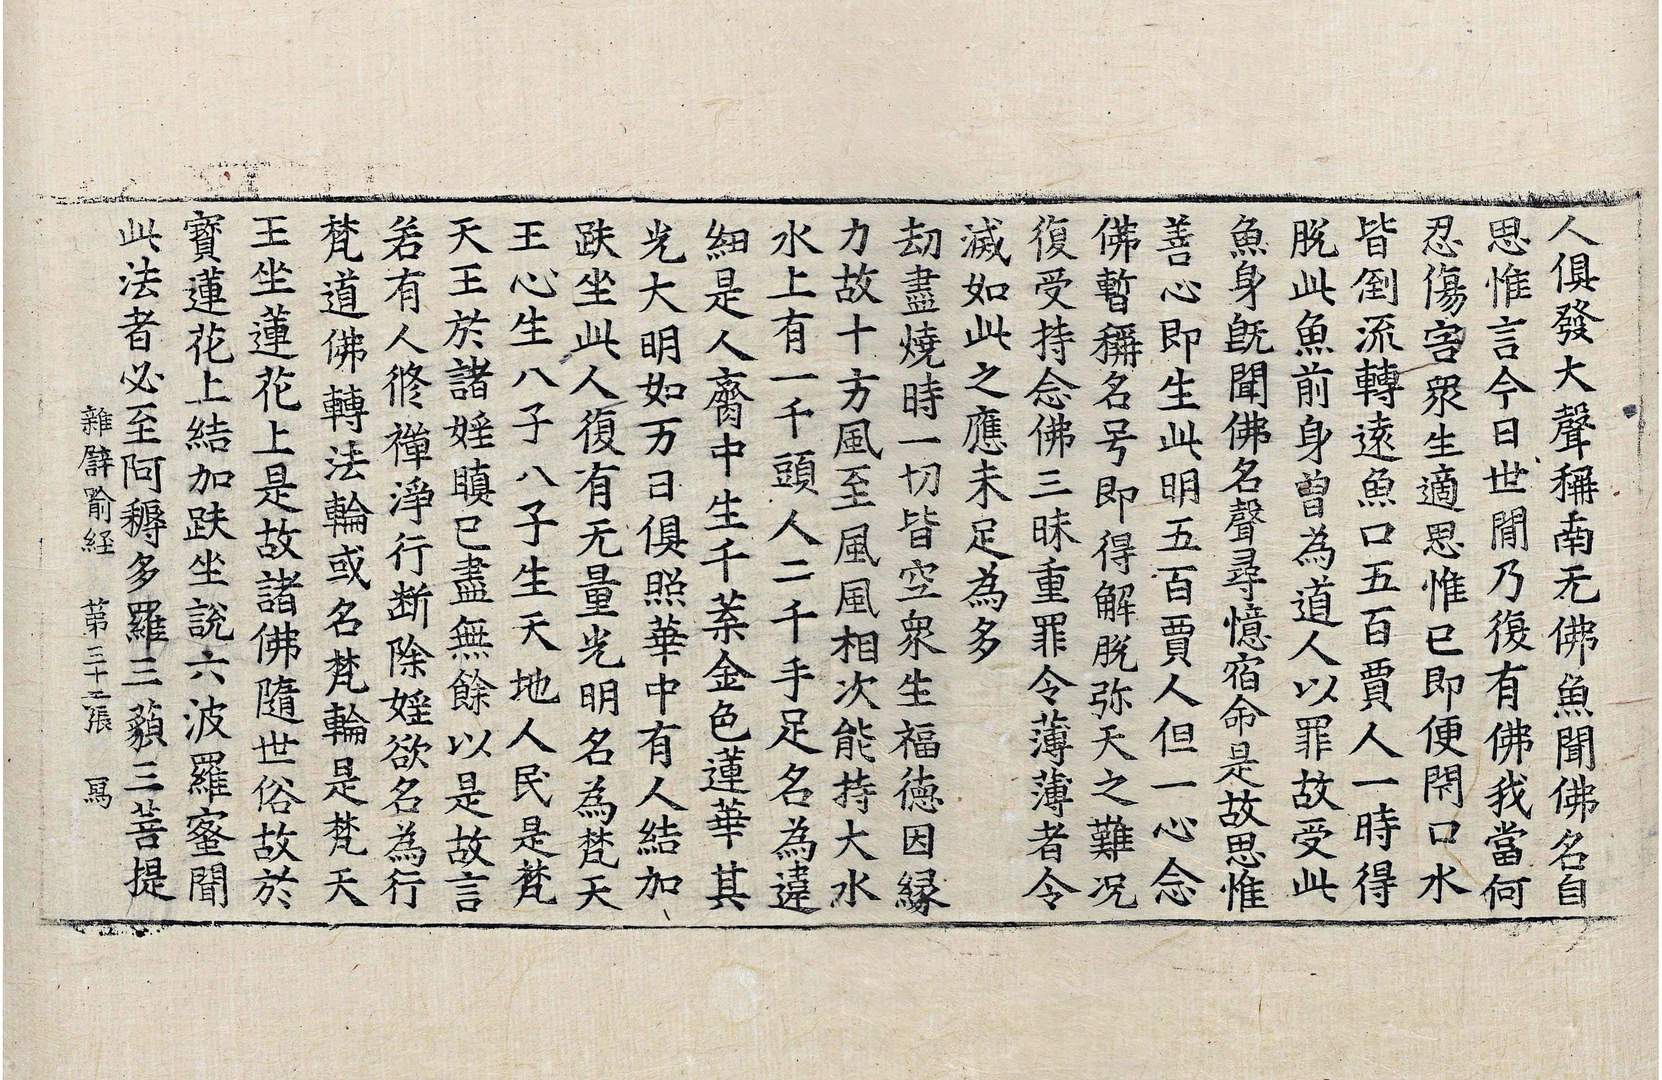 人俱發大聲稱南无佛魚聞佛名自
思惟言今日世間乃復有佛我當何
忍傷害眾生適思惟已即便閇口水
皆倒流轉遠魚口五百賈人一時得
脫此魚前身曾為道人以罪故受此
魚身旣聞佛名聲尋憶宿命是故思惟
善心即生此明五百賈人但一心念
佛暫稱名号即得解脫弥天之難况
復受持念佛三昧重罪令薄薄者令
滅如此之應未足為多
劫盡燒時一切皆空眾生福德因緣
力故十方風至風風相次能持大水
水上有一千頭人二千手足名為違
細是人齎中生千葉金色蓮華其
光大明如万日俱照華中有人結加
趺坐此人復有无量光明名為梵天
王心生八子八子生天地人民是梵
天王於諸婬瞋已盡無餘以是故言
若有人修禪淨行断除婬欲名為行
梵道佛轉法輪或名梵輪是梵天
王坐蓮花上是故諸佛隨世俗故於
寶蓮花上結加趺坐說六波羅蜜聞
此法者必至阿耨多羅三藐三菩提
雜譬喻経 第三十二張 寫